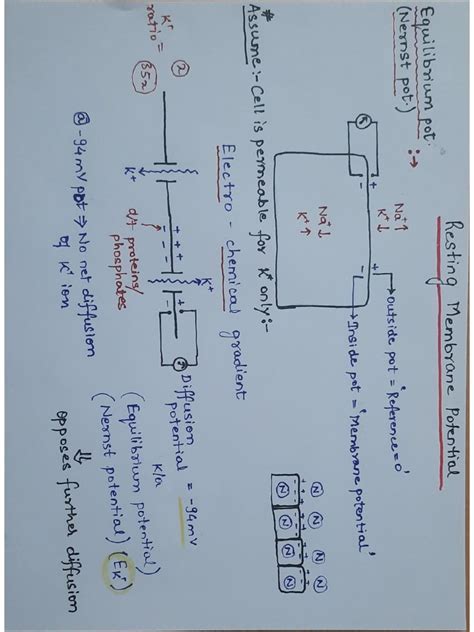 Resting Membrane Potential
Equilibrium pot. :→
(Nernst pot.)
Na⁺↑
K⁺↓
Na⁺↓
K⁺↑
+
-
+
-
→ outside pot = 'Reference = 0'
→ Inside pot = 'Membrane potential'
N N N N
N N N N
* Assume:- Cell is permeable for K⁺ only:-
Electro - chemical gradient
K⁺ ratio =
②
35x
K⁺
K⁺
+ + +
- - -
d/t proteins/
phosphates
Diffusion
potential = -94mV
K/a
(Equilibrium potential)
(Nernst potential) (EK⁺)
⇓
opposes further diffusion
@ -94mV pot ⇒ No net diffusion
of K⁺ ion